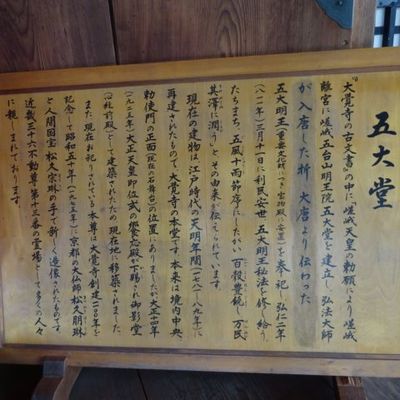 五大堂
『大覚寺の古文書』の中に「嵯峨天皇の勅願により嵯峨
離宮に嵯峨五台山明王院五大堂を建立し、弘法大師
が入唐した折 大唐より伝わった
五大明王(重要文化財につき宝物殿へ安置)を奉祀し弘仁二年
(八一一年)三月十一日に
五大明王秘法を修し給う。
たちまち、五風十雨節序にしたがい 百穀豊饒し 万民
其澤に潤う」と、その由来が伝えられています。
現在の建物は、江戸時代の天明年間(一七八一〜八九年)に
再建されたもので、大覚寺の本堂です。本来は境内中央、
勅使門の正面(現在の石舞台)の位置にありましたが大正十四年
(一九二五年)大正天皇即位式の饗宴殿が下賜され御影堂
(心経前殿)として建築されたため、現在地に移築されました。
また、現在お祀りされている本尊は大覚寺創建一一〇〇年を
記念して昭和五十年(一九七五年)に京都の大仏師 松久朋琳
と人間国宝 松久宗琳の手で新しく造像されたもので
近畿三十六不動尊 第十三番の霊場として多くの人々
に親しまれております。